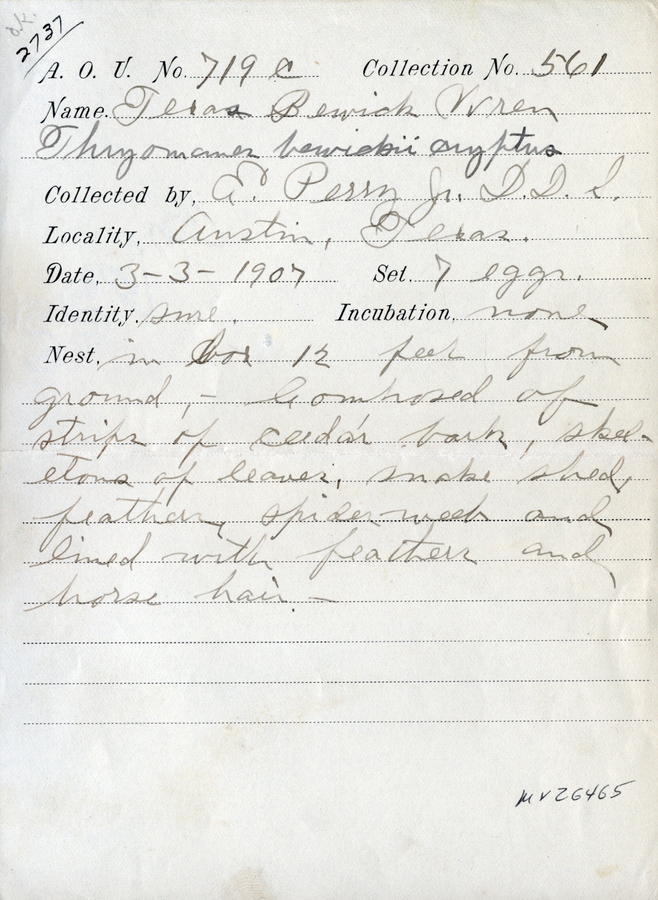 ok.
2737
A. O. U. No. 719 c Collection No. 561
Name. Texas Bewick Wren
Thryomanes bewickii cryptus
Collected by, E. Perry Jr. D.D.S.
Locality, Austin, Texas.
Date, 3-3-1907 Set. 7 eggs.
Identity. sure. Incubation. none
Nest, in box 12 feet from
ground, - Composed of
strips of ceedar bark, skel-
etons of leaves, snake shed,
feathers, spider web and
lined with feathers and
horse hair. -
MV26465